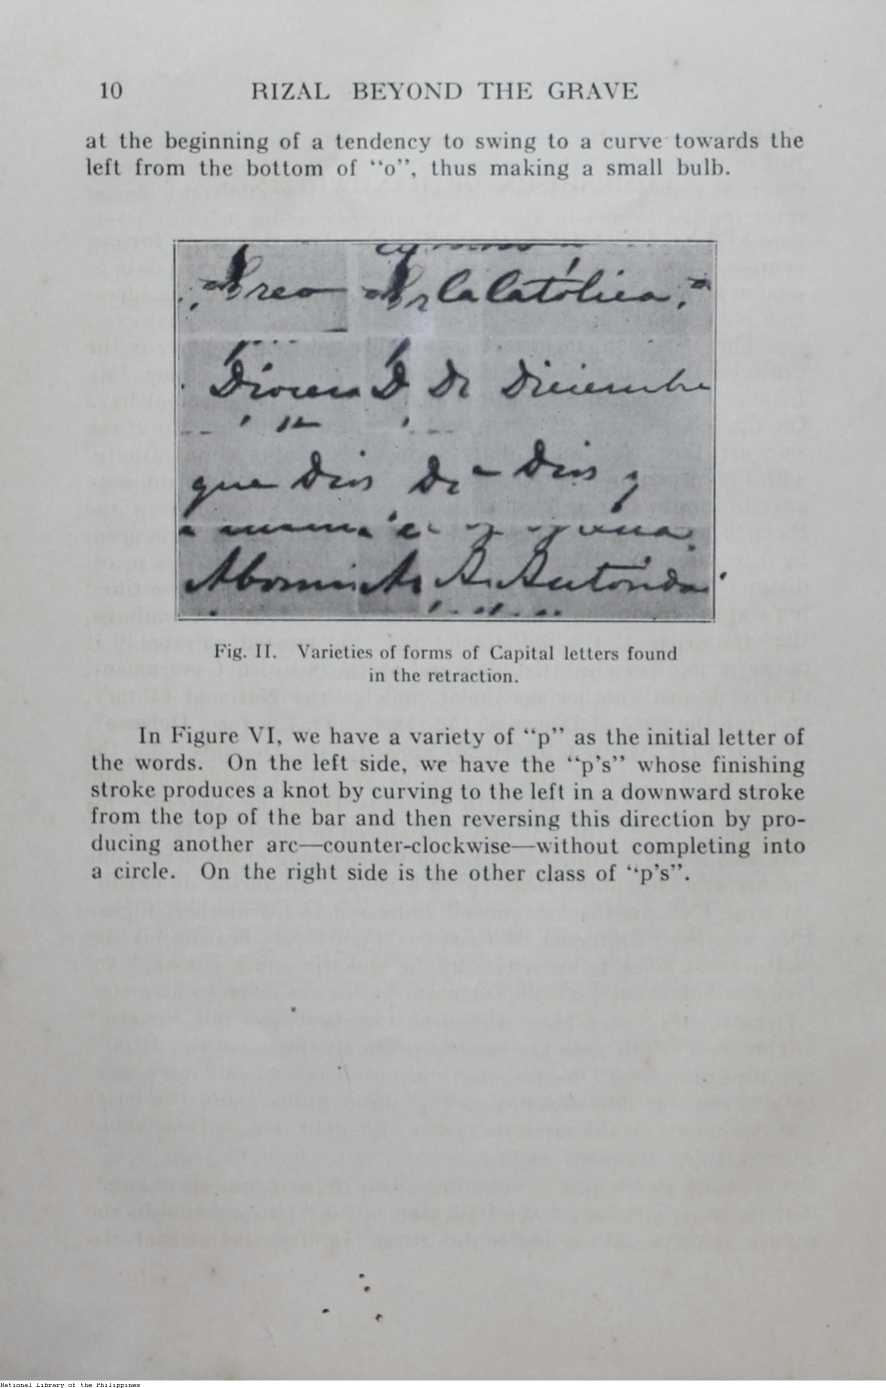 10 RIZAL BEYOND THE GRAVE
at the beginning of a tendency to swing to a curve towards the
left from the bottom of “o”, thus making a small bulb.
Creo la Católica,
D De Diciembre
que Dios De Dios y
Abomin A Autorida
Fig. II. Varieties of forms of Capital letters found
in the retraction.
In Figure VI, we have a variety of “p” as the initial letter of
the words. On the left side, we have the “p’s” whose finishing
stroke produces a knot by curving to the left in a downward stroke
from the top of the bar and then reversing this direction by pro-
ducing another arc—counter-clockwise—without completing into
a circle. On the right side is the other class of “p’s”.
National Library of the Philippines